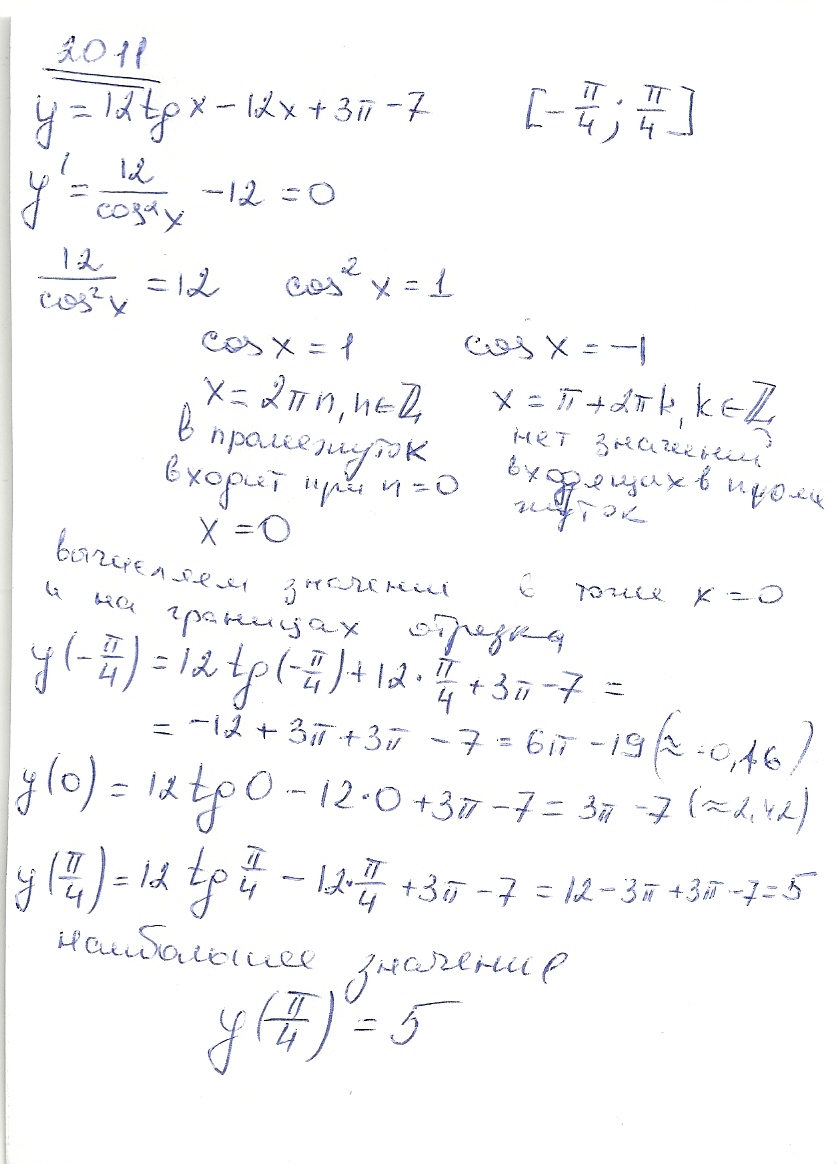 2011
y = 12 tg x - 12x + 3π - 7 [-π/4; π/4]
y' = 12/cos²x - 12 = 0
12/cos²x = 12 cos²x = 1
cos x = 1 cos x = -1
x = 2πn, n∈ℤ x = π + 2πk, k∈ℤ
в промежуток нет значений
входит при n = 0 входящих в проме
x = 0 жуток
вычисляем значении в точке x = 0
и на границах отрезка
y(-π/4) = 12 tg(-π/4) + 12·π/4 + 3π - 7 =
= -12 + 3π + 3π - 7 = 6π - 19 (≈ -0,16)
y(0) = 12 tg 0 - 12·0 + 3π - 7 = 3π - 7 (≈2,42)
y(π/4) = 12 tg π/4 - 12·π/4 + 3π - 7 = 12 - 3π + 3π - 7 = 5
наибольшее значение
y(π/4) = 5